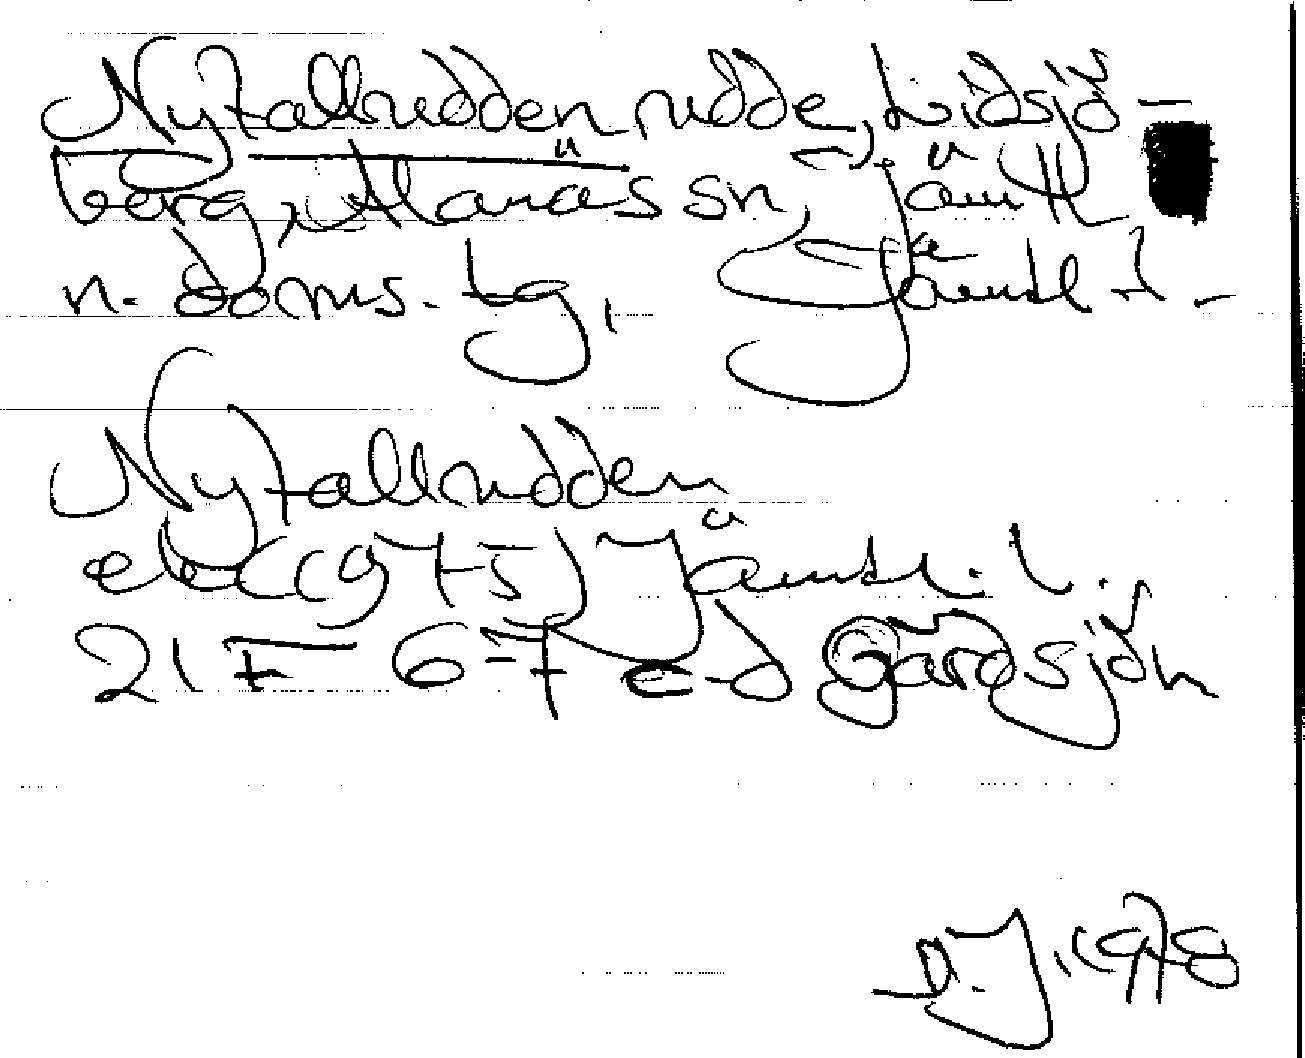 Nytallrudden, udde, Lidsjö-
berg, Alanäs sn, Jämtl
n. doms. tg, Jämtl l.
Nytallrudden
ek (1975) Jämtl. l.
21 F 6-7 c-d Gårdsjön
1978